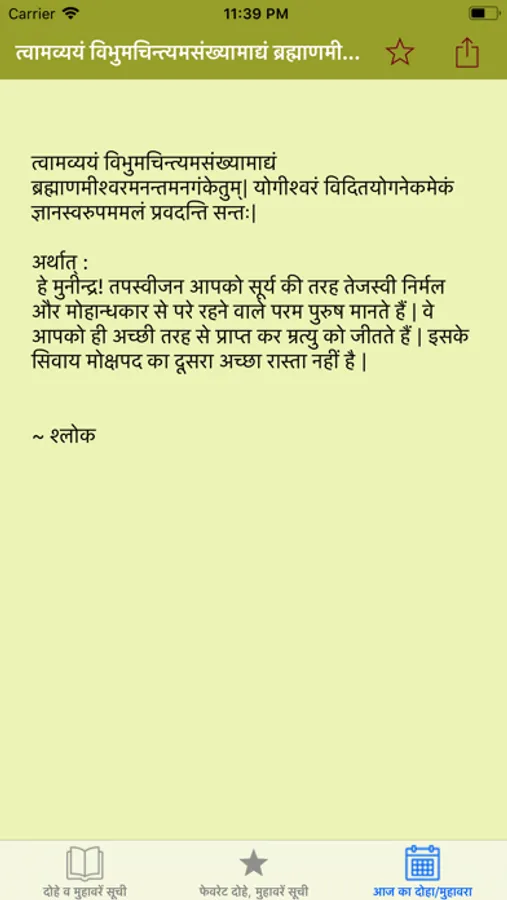 Carrier 11:39 PM
त्वामव्ययं विभुमचिन्त्यमसंख्यामाद्यं ब्रह्माणमी...
त्वामव्ययं विभुमचिन्त्यमसंख्यामाद्यं
ब्रह्माणमीश्वरमनन्तमनगंकेतुम्| योगीश्वरं विदितयोगनेकमेकं
ज्ञानस्वरुपममलं प्रवदन्ति सन्तः|
अर्थात् :
हे मुनीन्द्र! तपस्वीजन आपको सूर्य की तरह तेजस्वी निर्मल
और मोहान्धकार से परे रहने वाले परम पुरुष मानते हैं | वे
आपको ही अच्छी तरह से प्राप्त कर म्रत्यु को जीतते हैं | इसके
सिवाय मोक्षपद का दूसरा अच्छा रास्ता नहीं है |
~ श्लोक
दोहे व मुहावरें सूची
फेवरेट दोहे, मुहावरें सूची
आज का दोहा/मुहावरा